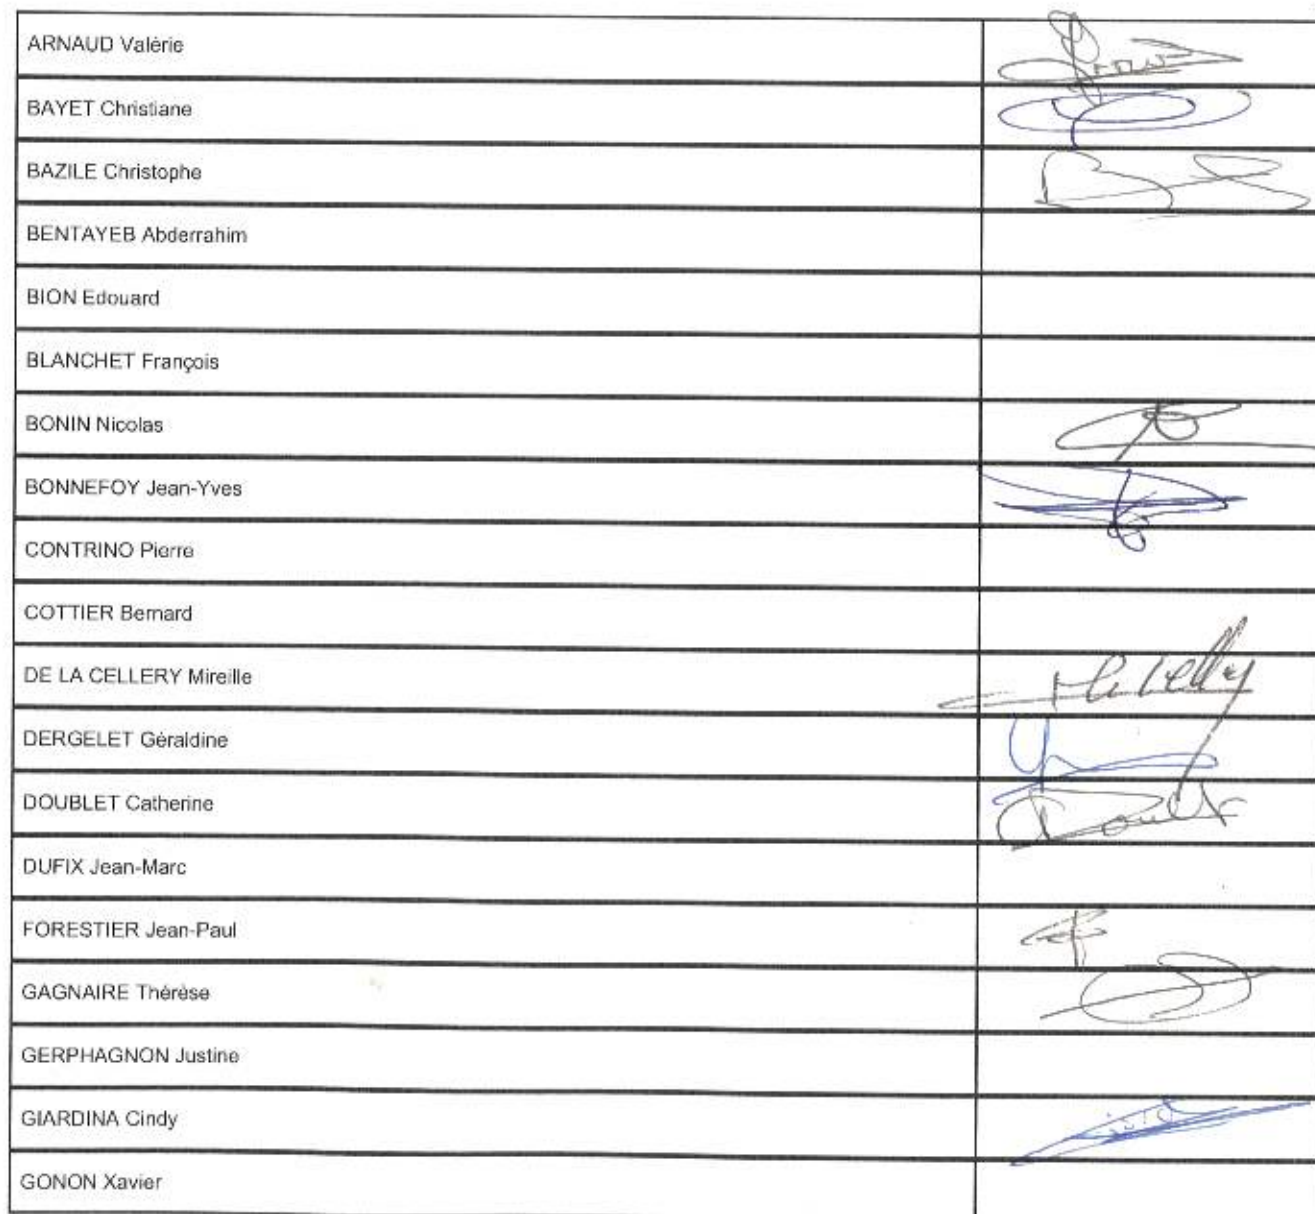 ARNAUD Valérie
BAYET Christiane
BAZILE Christophe
BENTAYEB Abderrahim
BION Edouard
BLANCHET François
BONIN Nicolas
BONNEFOY Jean-Yves
CONTRINO Pierre
COTTIER Bernard
DE LA CELLERY Mireille
DERGELET Géraldine
DOUBLET Catherine
DUFIX Jean-Marc
FORESTIER Jean-Paul
GAGNAIRE Thérèse
GERPHAGNON Justine
GIARDINA Cindy
GONON Xavier